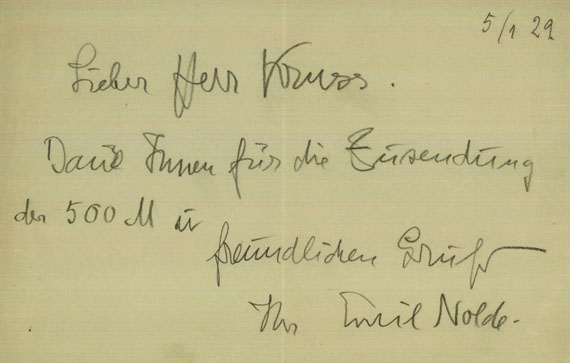 5/1 29
Lieber Herr Kruss.
Dank Ihnen für die Zusendung
der 500 M u
freundlichen Gruß
Ihr Emil Nolde.